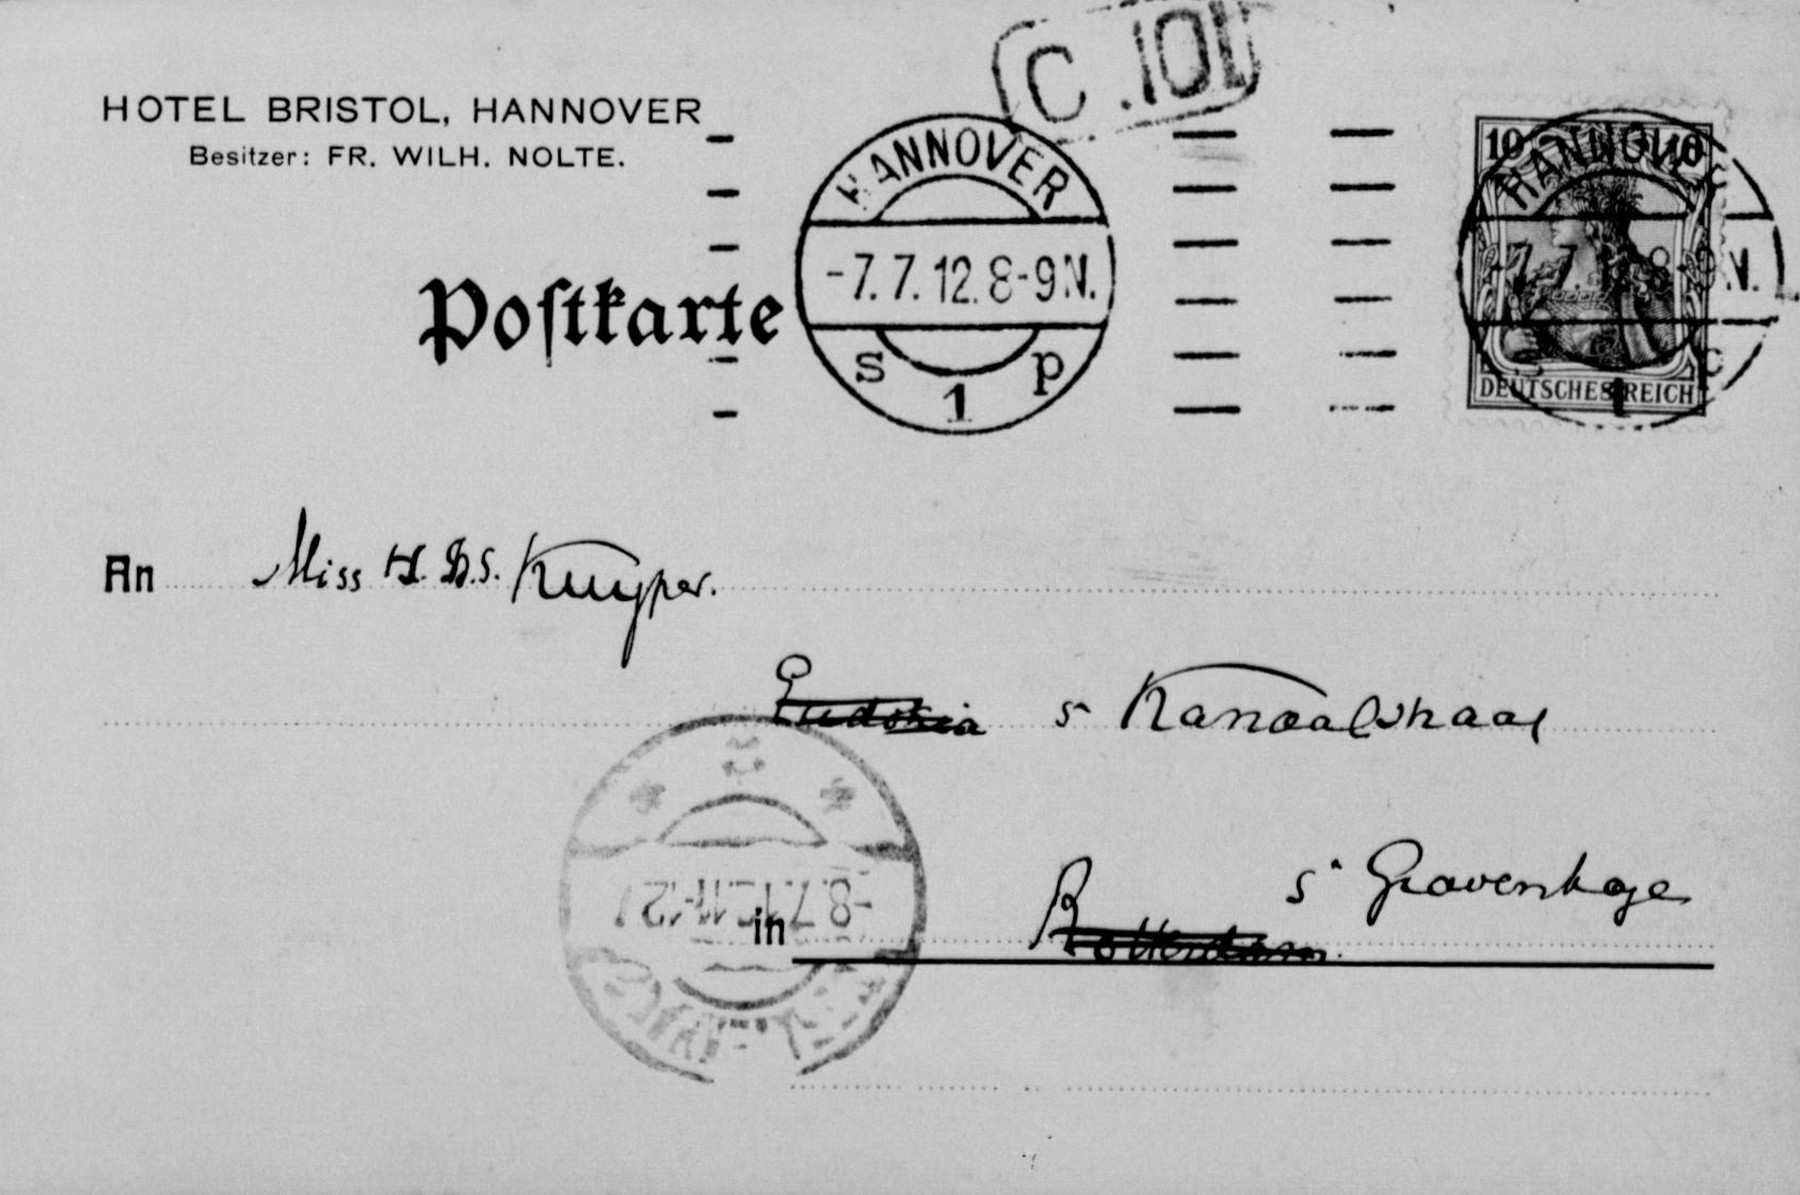 C.101
HOTEL BRISTOL, HANNOVER
Besitzer: FR. WILH. NOLTE.
Postkarte
HANNOVER
-7.7.12.8-9N.
s 1 p
10 10
HANNOVER
-7.7.12.8-9N.
s 1 p
DEUTSCHES REICH
An Miss H. S. S. Kuyper.
5 Kanaalstraat
-8.7.12.11-12
s' Gravenhage
in Rotterdam.